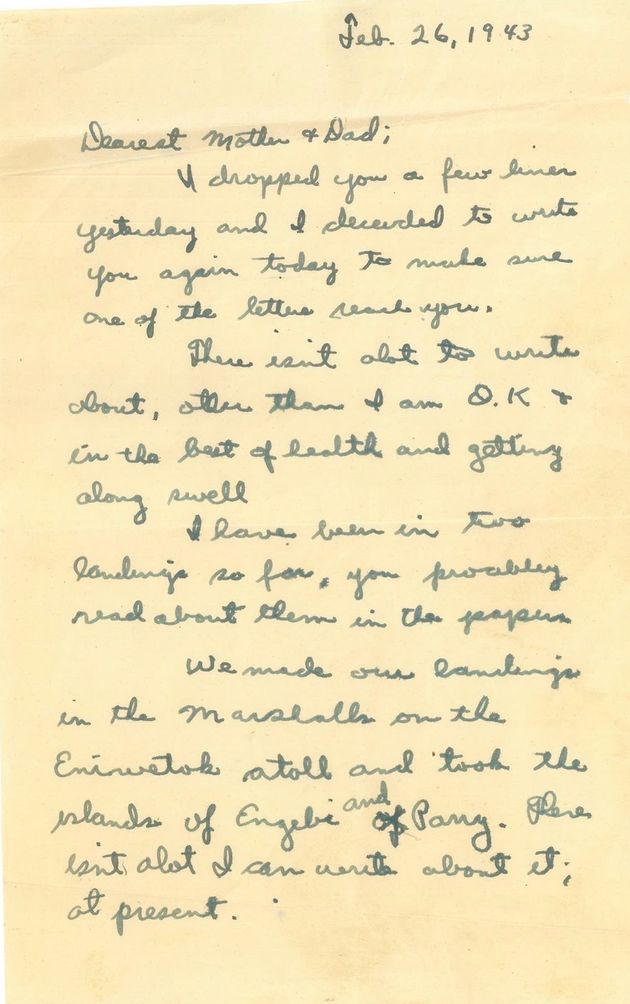 Feb. 26, 1943
Dearest Mother & Dad;
I dropped you a few lines
yesterday and I decieded to write
you again today to make sure
one of the letters reach you.
There isn't alot to write
about, other than I am O.K &
in the best of health and getting
along swell
I have been in two
landings so far, you proabley
read about them in the papers
We made our landings
in the Marshalls on the
Eniwetok atoll and took the
islands of Engebi and Parry. There
isn't alot I can write about it;
at present.